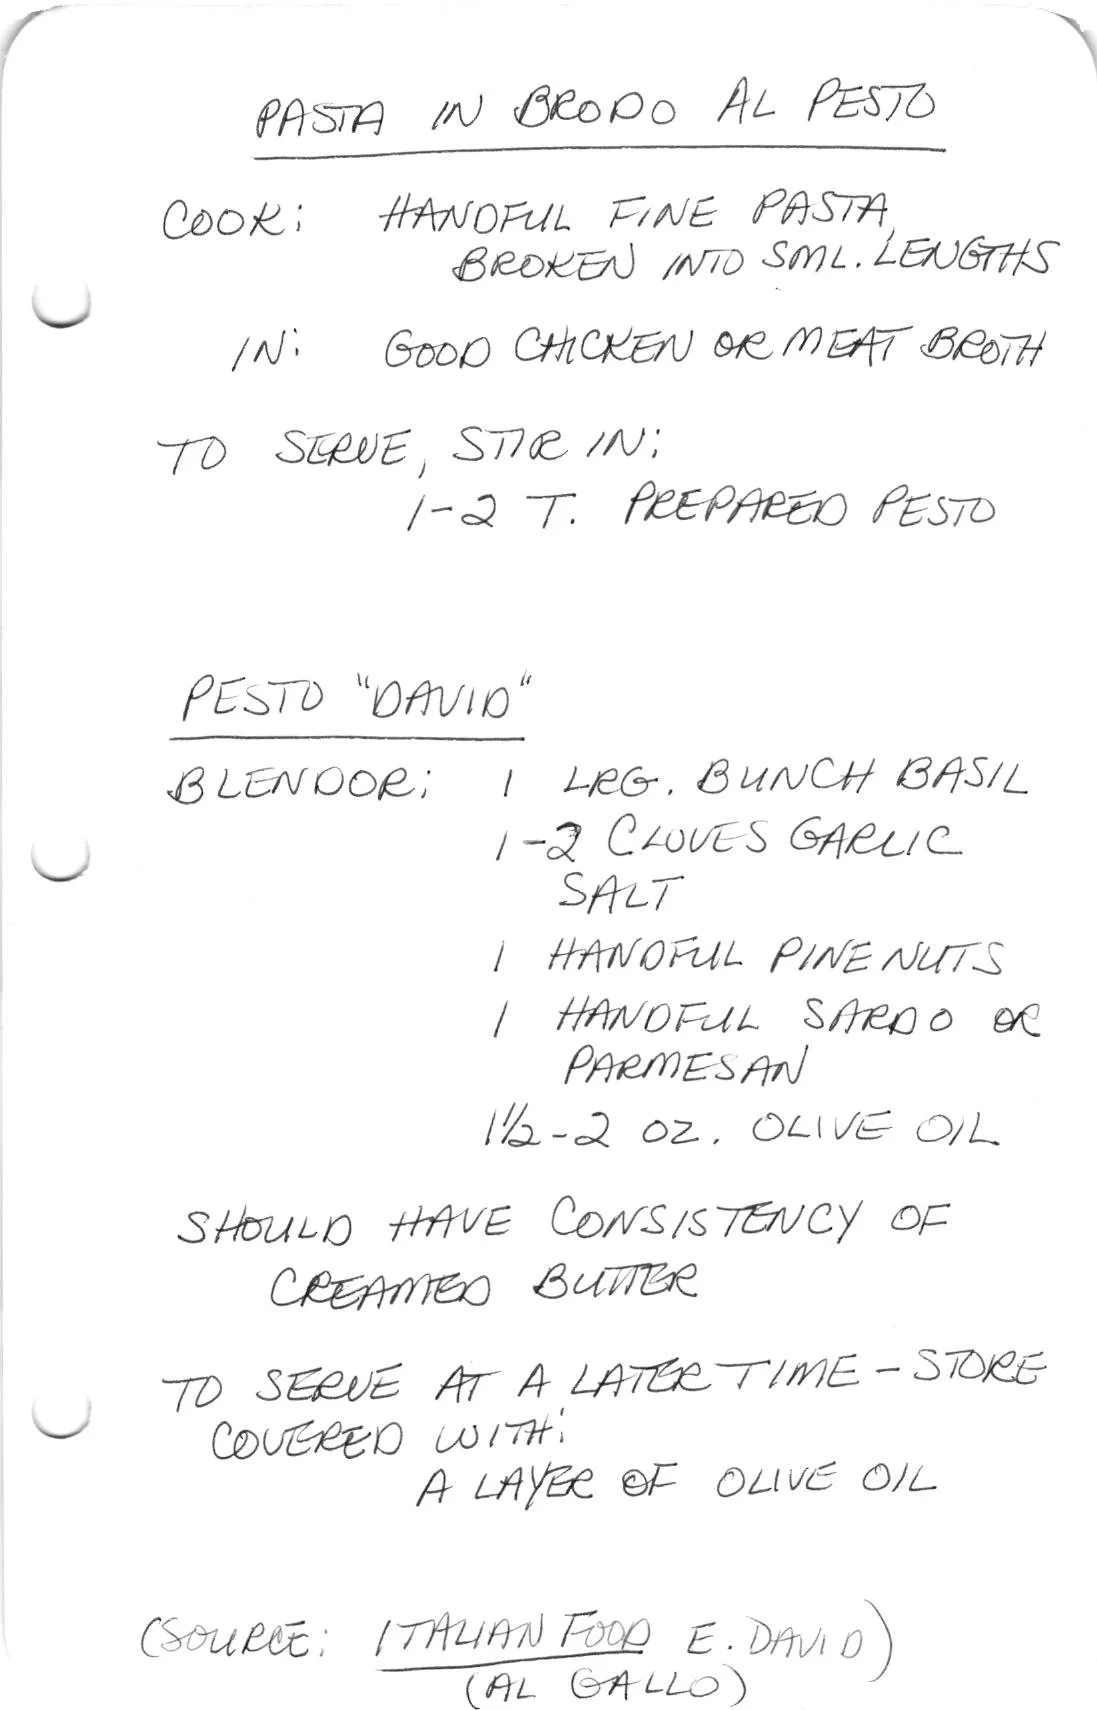 PASTA IN BRODO AL PESTO
COOK: HANDFUL FINE PASTA,
BROKEN INTO SML. LENGTHS
IN: GOOD CHICKEN OR MEAT BROTH
TO SERVE, STIR IN:
1-2 T. PREPARED PESTO
PESTO "DAVID"
BLENDOR: 1 LRG. BUNCH BASIL
1-2 CLOVES GARLIC
SALT
1 HANDFUL PINE NUTS
1 HANDFUL SARDO OR
PARMESAN
1½-2 OZ. OLIVE OIL
SHOULD HAVE CONSISTENCY OF
CREAMED BUTTER
TO SERVE AT A LATER TIME - STORE
COVERED WITH:
A LAYER OF OLIVE OIL
(SOURCE: ITALIAN FOOD E. DAVID)
(AL GALLO)